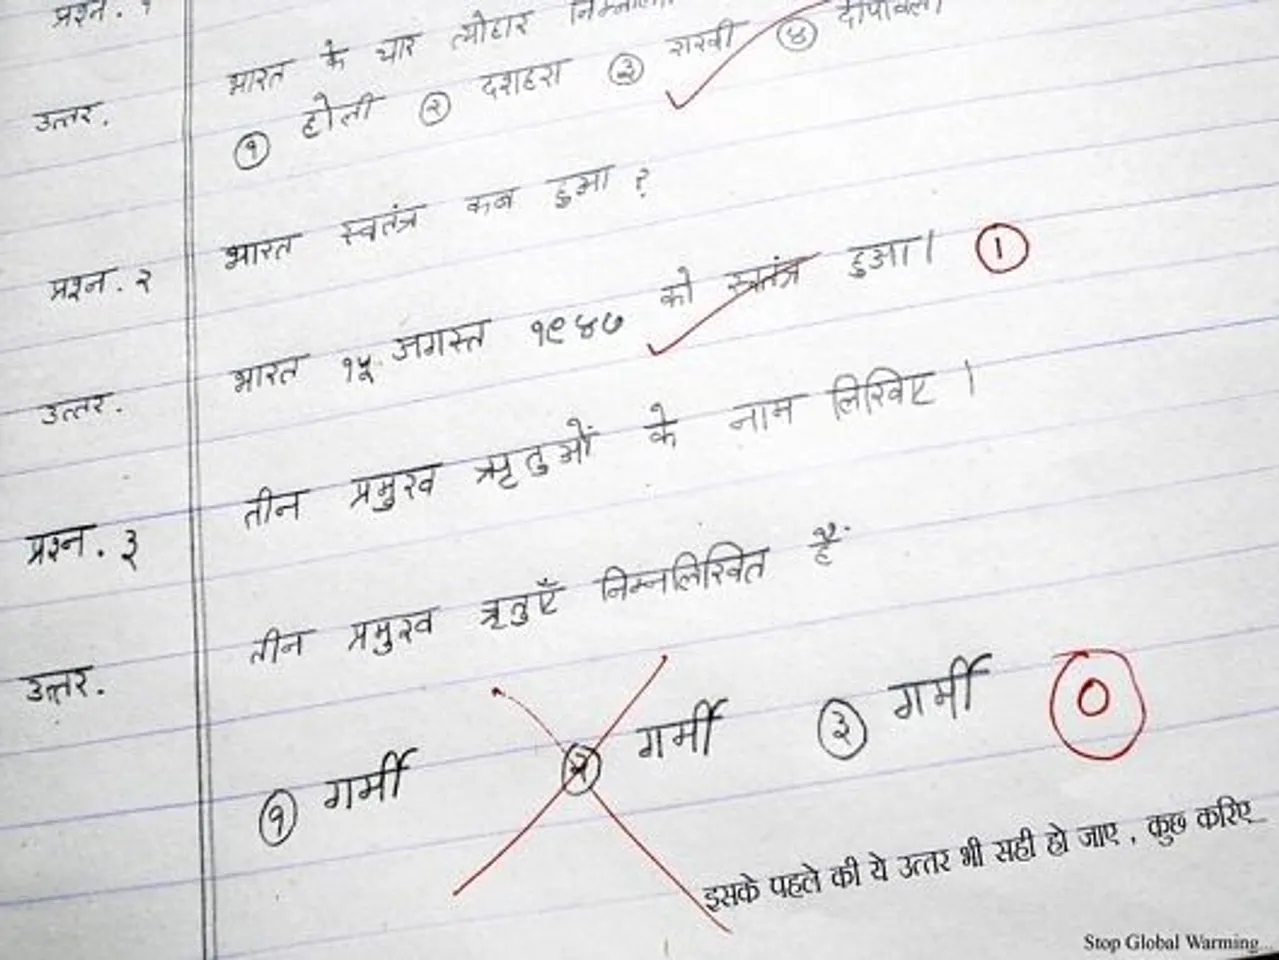 प्रश्न. १
भारत के चार त्योहार
उत्तर.
① होली ② दशहरा ③ राखी ④ दीपावली
भारत स्वतंत्र कब हुआ ?
प्रश्न. २
भारत १५ अगस्त १९४७ को स्वतंत्र हुआ। 1
उत्तर.
तीन प्रमुख ऋतुओं के नाम लिखिए ।
प्रश्न. ३
तीन प्रमुख ऋतुएँ निम्नलिखित हैं
उत्तर.
① गर्मी ② गर्मी ③ गर्मी 0
इसके पहले की ये उत्तर भी सही हो जाए , कुछ करिए...
Stop Global Warming...